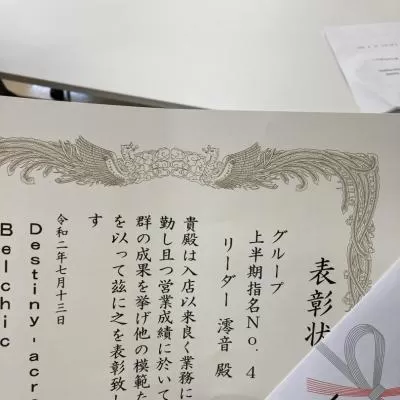 表彰状
グループ
上半期指名No. 4
リーダー 澪音 殿
貴殿は入店以来良く業務に
勤し且つ営業成績に於いて
群の成果を挙げ他の模範た
を以って茲に之を表彰致し
す
令和二年七月十三日
Destiny-acro
Belchic